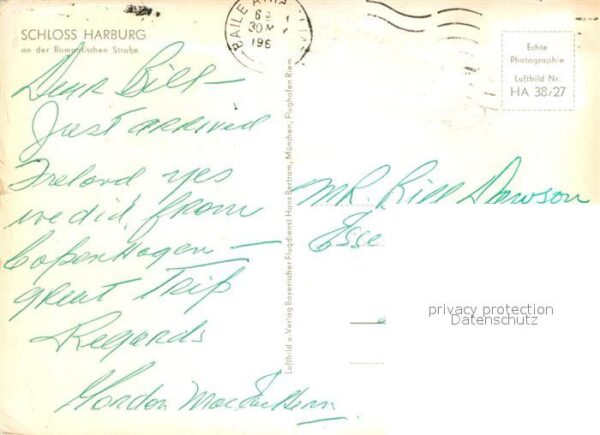 SCHLOSS HARBURG
an der Romantischen Straße
BAILE ÁTHA
30
196
Echte
Photographie
Luftbild Nr.
HA 38/27
Dear Bill—
Just arrived
Ireland yes
we did, from
Copenhagen —
great Trip
Regards
Gordon
Luftbild u. Verlag Bayerischer Flugdienst Hans Bertram, München, Flughafen Riem
MR. Bill Dawson
Esse
privacy protection
Datenschutz